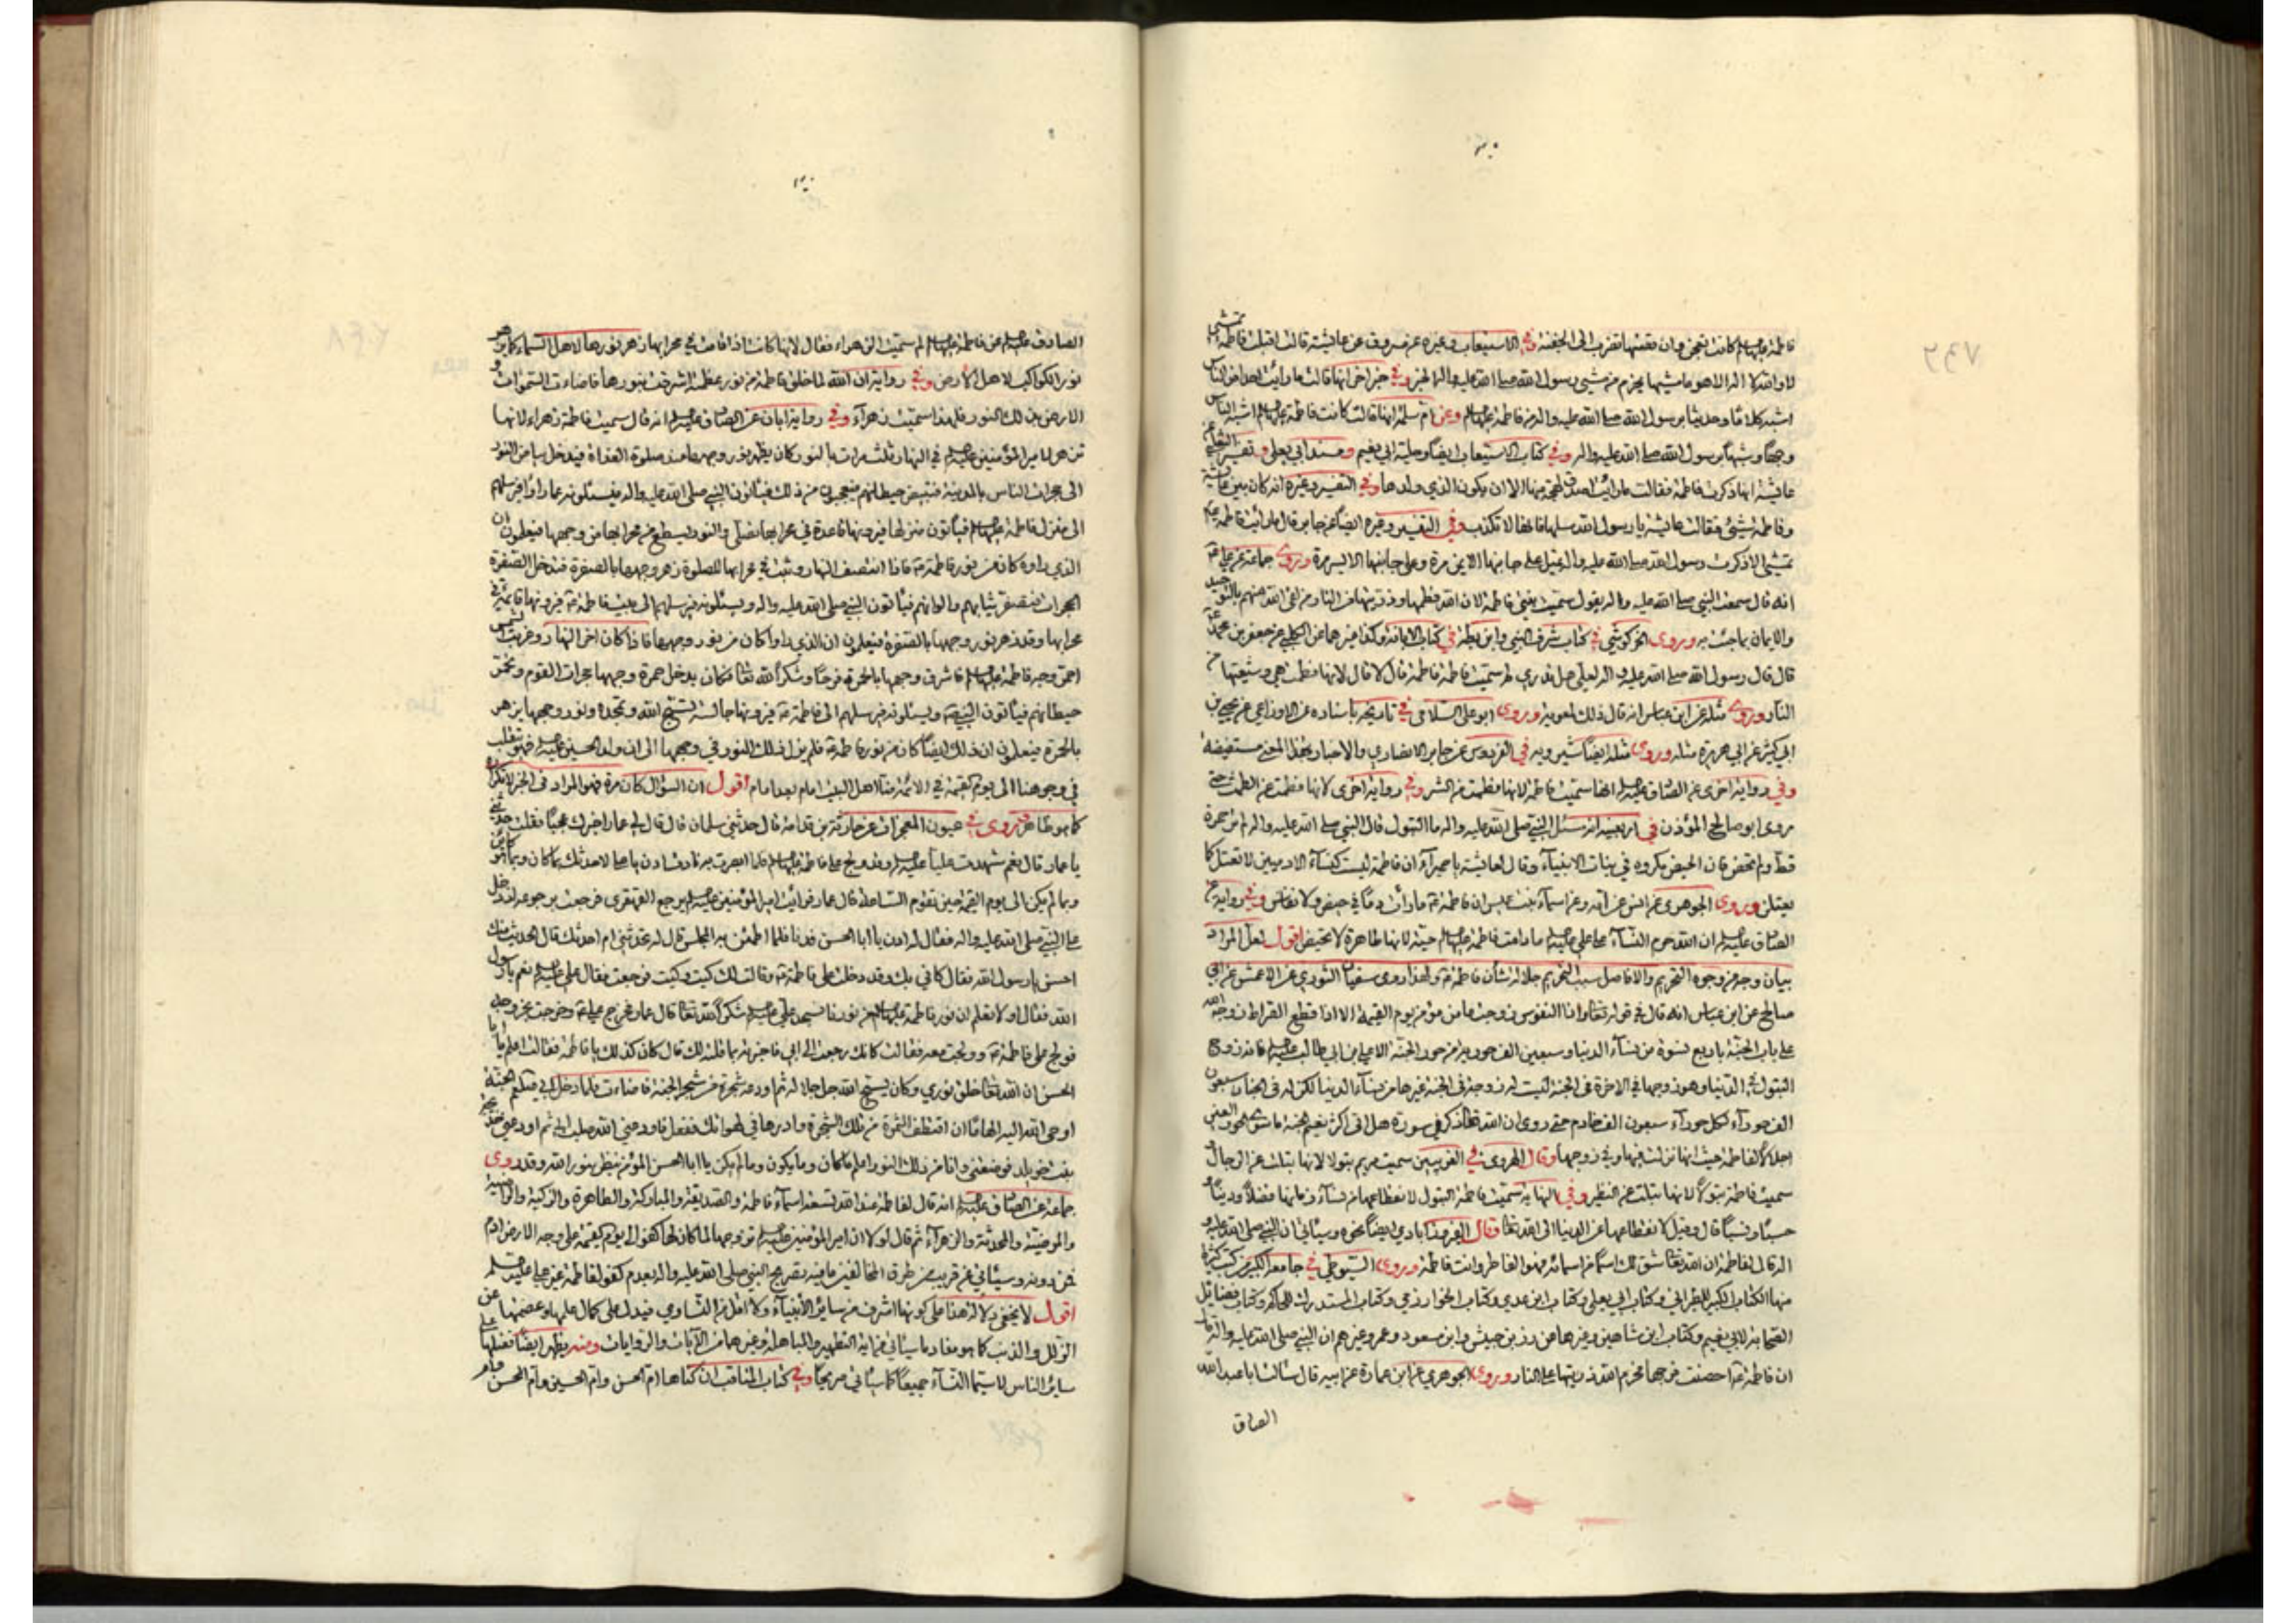 فاطمة عليها السلم كانت تعجن وان قصتها تضرب الى الجفنة وفي الاستيعاب وغيره عن مسروق عن عايشة قالت اقبلت فاطمة تمشي
لا والله الا هو ما مشيها يخرم من مشي رسول الله صلى الله عليه واله الخبر وفي خبر اخر انها قالت ما رايت احدا من الناس
اشبه كلاما وحديثا برسول الله صلى الله عليه واله من فاطمة عليها السلم وعن ام سلمة انها قالت كانت فاطمة عليها السلم اشبه الناس
وجها وشبها برسول الله صلى الله عليه واله وفي كتاب الاستيعاب ايضا وحلية ابي نعيم ومسند ابي يعلى وتفسير الثعلبي عن
عايشة انها ذكرت فاطمة فقالت ما رايت اصدق لهجة منها الا ان يكون الذي ولدها وفي التفسير وغيره انه كان بين عايشة
وفاطمة شيئ فقالت عايشة يا رسول الله سلها فانها لا تكذب وفي التفسير وغيره ايضا عن جابر قال ما رايت فاطمة
تمشي الا ذكرت رسول الله صلى الله عليه واله تميل على جانبها الايمن مرة وعلى جانبها الايسر مرة وروى جماعة عن علي ع
انه قال سمعت النبي صلى الله عليه واله يقول سميت بنتي فاطمة لان الله فطمها وذريتها من النار من لقى الله منهم بالتوحيد
والايمان بما جئت به وروى الخركوشي في كتاب شرف النبي وابن بطة في كتاب الابانة وكذا غيرهما عن الكلبي عن جعفر بن محمد
قال قال رسول الله صلى الله عليه واله لعلي هل تدري لم سميت فاطمة فاطمة قال لا قال لانها فطمت هي وشيعتها من
النار وروى مثله عن ابن عباس انه قال ذلك لمعوية وروى ابو علي السلامي في تاريخه باسناده عن الاوزاعي عن يحيى بن
ابي كثير عن ابي هريرة مثله وروى مثله ايضا شيرويه في الفردوس عن جابر الانصاري والاخبار بهذا المعنى مستفيضة
وفي رواية اخرى عن الصادق عليه السلم انها سميت فاطمة لانها فطمت من الشر وفي رواية اخرى لانها فطمت عن الطمث حتى
روى ابو صالح المؤذن في اربعينه انه سئل النبي صلى الله عليه واله ما البتول قال النبي صلى الله عليه واله لم تر حمرة
قط ولم تحض فان الحيض مكروه في بنات الانبياء وقال لعايشة يا حميراء ان فاطمة ليست كنساء الادميين لا تعتل كما
يعتلن وروى الجوهري عن انس عن امه وعن اسماء بنت عميس ان فاطمة ع ما رات دما في حيض ولا نفاس وفي رواية عن
الصادق عليه السلم ان الله حرم النساء على علي عليه السلم ما دامت فاطمة عليها السلم حية لانها طاهرة لا تحيض اقول لعل المراد
بيان وجه من وجوه التحريم والا فاصل سبب التحريم جلالة شان فاطمة ع ولهذا روى سفيان الثوري عن الاعمش عن ابي
صالح عن ابن عباس انه قال في قوله تعالى واذا النفوس زوجت ما من مؤمن يوم القيمة الا اذا قطع الصراط زوجه الله
على باب الجنة باربع نسوة من نساء الدنيا وسبعين الف حورية من حور الجنة الا علي بن ابي طالب عليه السلم فانه زوج
البتول في الدنيا وهو زوجها في الاخرة في الجنة ليست له زوجة في الجنة غيرها من نساء الدنيا لكن له في الجنان سبعون
الف حوراء لكل حوراء سبعون الف خادم حتى روى ان الله تعالى ذكر في سورة هل اتى اكثر نعيم الجنة ما سوى الحور العين
اجلالا لفاطمة حيث انها نزلت فيها وفي زوجها وقال الهروي في الغريبين سميت مريم بتولا لانها بتلت عن الرجال
سميت فاطمة بتولا لانها بتلت عن النظير وفي النهاية سميت فاطمة البتول لانقطاعها من نساء زمانها فضلا ودينا و
حسبا ونسبا قال وقيل لانقطاعها عن الدنيا الى الله تعالى وقال الفيروزابادي ايضا نحوه وسياتي ان النبي صلى الله عليه و
اله قال لفاطمة ان الله تعالى شق لك اسما من اسمائه فهو الفاطر وانت فاطمة وروى السيوطي في جامعه الكبير من كتب كثيرة
منها الكتاب الكبير للطبراني وكتاب ابي يعلى وكتاب ابن عدي وكتاب الخوارزمي وكتاب المستدرك للحاكم وكتاب فضايل
الصحابة لابي نعيم وكتاب ابن شاهين وغيرها من زر بن حبيش وابن مسعود وعمر وغيرهم ان النبي صلى الله عليه واله قال
ان فاطمة ع احصنت فرجها فحرم الله ذريتها على النار وروى الجوهري عن ابن عمارة عن ابيه قال سالت ابا عبد الله
الصادق
الصادق عليه السلم عن فاطمة عليها السلم لم سميت الزهراء فقال لانها كانت اذا قامت في محرابها زهر نورها لاهل السماء كما يزهر
نور الكواكب لاهل الارض وفي رواية ان الله لما خلق فاطمة من نور عظمته اشرقت بنورها فاضاءت السموات و
الارض من ذلك النور فلهذا سميت زهراء وفي رواية ابان عن الصادق عليه السلم انه قال سميت فاطمة زهراء لانها
تزهر لامير المؤمنين عليه السلم في النهار ثلث مرات بالنور كان يظهر نور وجهها عند صلوة الغداة فيدخل بياض النور
الى حجرات الناس بالمدينة فتبيض حيطانهم فيعجبون من ذلك فياتون النبي صلى الله عليه واله فيسئلونه عما راوا فيرسلهم
الى منزل فاطمة عليها السلم فياتون منزلها فيرونها قاعدة في محرابها تصلي والنور يسطع من محرابها من وجهها فيعلمون ان
الذي راوه كان من نور فاطمة ع فاذا انتصف النهار وثبت في محرابها للصلوة زهر وجهها بالصفرة فتدخل الصفرة
الحجرات فتصفر ثيابهم والوانهم فياتون النبي صلى الله عليه واله ويسئلونه فيرسلهم الى بيت فاطمة ع فيرونها قائمة في
محرابها وقد زهر نور وجهها بالصفرة فيعلمون ان الذي راوا كان من نور وجهها فاذا كان اخر النهار وغربت الشمس
احمر وجه فاطمة عليها السلم فاشرق وجهها بالحمرة فرحا وشكرا لله تعالى فكان يدخل حمرة وجهها حجرات القوم وتحمر
حيطانهم فياتون النبي ص ويسئلونه فيرسلهم الى فاطمة ع فيرونها جالسة تسبح الله وتمجده ونور وجهها يزهر
بالحمرة فيعلمون ان ذلك ايضا كان من نور فاطمة فلم يزل ذلك النور في وجهها الى ان ولد الحسين عليه السلم فهو يتقلب
في وجوهنا الى يوم القيمة في الائمة منا اهل البيت امام بعد امام اقول ان السؤال كان مرة فهو المراد في الخبر لا تكرار
كما هو ظاهر وروى في عيون المعجزات عن حارثة بن قدامة قال حدثني سلمان قال قال لي عمار اخبرك عجبا فقلت حدثني
يا عمار قال نعم شهدت عليا عليه السلم وقد ولج على فاطمة عليها السلم فلما ابصرت به نادت ادن يا علي لاحدثك بما كان وبما هو كائن
وبما لم يكن الى يوم القيمة حين تقوم الساعة قال عمار فرايت امير المؤمنين عليه السلم يرجع القهقرى فرجعت برجوعه اذ دخل
على النبي صلى الله عليه واله فقال له ادن يا ابا الحسن فدنا فلما اطمئن به المجلس قال له تحدثني ام احدثك قال الحديث منك
احسن يا رسول الله فقال كاني بك وقد دخلت على فاطمة ع وقالت لك كيت وكيت فرجعت فقال علي عليه السلم نعم يا رسول
الله فقال اولا تعلم ان نور فاطمة عليها السلم من نورنا فسجد علي عليه السلم شكرا لله تعالى قال عمار فخرج علي ع وخرجت بخروجه
فولج على فاطمة ع وولجت معه فقالت كانك رجعت الى ابي فاخبرته بما قلته لك قال كان كذلك يا فاطمة فقالت اعلم يا ابا
الحسن ان الله تعالى خلق نوري وكان يسبح الله جل جلاله ثم اودعه شجرة من شجر الجنة فاضاءت فلما دخل ابي الجنة
اوحى الله اليه الهاما ان اقتطف الثمرة من تلك الشجرة وادرها في لهواتك ففعل فاودعني الله صلب ابي ثم اودعني خديجة
بنت خويلد فوضعتني وانا من ذلك النور اعلم ما كان وما يكون وما لم يكن يا ابا الحسن المؤمن ينظر بنور الله وقد روى
جماعة عن الصادق عليه السلم انه قال لفاطمة عند الله تسعة اسماء فاطمة والصديقة والمباركة والطاهرة والزكية والراضية
والمرضية والمحدثة والزهراء ثم قال لولا ان امير المؤمنين عليه السلم تزوجها لما كان لها كفو الى يوم القيمة على وجه الارض ادم
فمن دونه وسياتي عن قريب من طرق المخالفين ما فيه تصريح النبي صلى الله عليه واله بعدم كفو لفاطمة غير علي عليه السلم
اقول لا يخفى دلالة هذا على كونها اشرف من سائر الانبياء ولا اقل من التساوي فيدل على كمال علمها وعصمتها عن
الزلل والذنب كما هو مفاد ما سياتي في اية التطهير والمباهلة وغيرهما من الايات والروايات ومنه يظهر ايضا فضلها على
سائر الناس لا سيما النساء جميعا كما ياتي صريحا وفي كتاب المناقب ان كناها ام الحسن وام الحسين وام المحسن وام